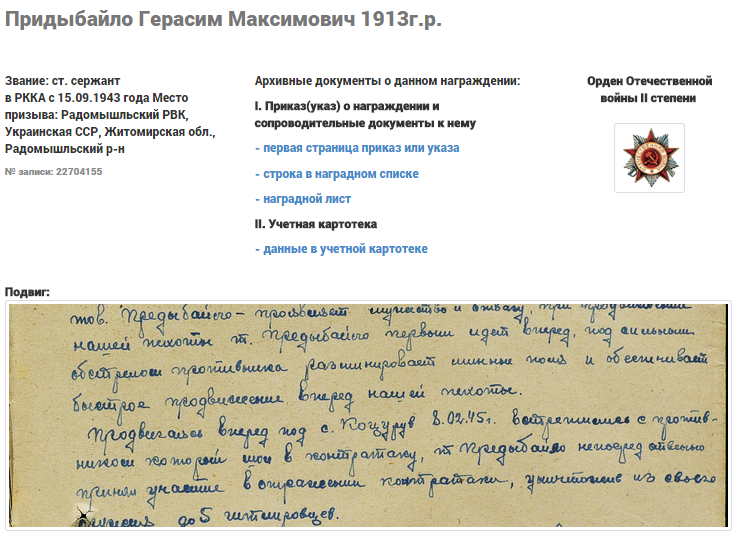 Придыбайло Герасим Максимович 1913г.р.
Звание: ст. сержант
в РККА с 15.09.1943 года Место
призыва: Радомышльский РВК,
Украинская ССР, Житомирская обл.,
Радомышльский р-н
№ записи: 22704155
Архивные документы о данном награждении:
I. Приказ(указ) о награждении и
сопроводительные документы к нему
- первая страница приказ или указа
- строка в наградном списке
- наградной лист
II. Учетная картотека
- данные в учетной картотеке
Орден Отечественной
войны II степени
Подвиг:
тов. Предыбайло - проявляет мужество и отвагу, при продвижении
нашей пехоты т. Предыбайло первым идет вперед, под сильным
обстрелом противника разминировает минные поля и обеспечивает
быстрое продвижение вперед нашей пехоты.
Продвигаясь вперед под с. Коцурув 8.02.45г. встретились с против-
ником который шел в контратаку, т. Предыбайло непосредственно
принял участие в отражении контратаки, уничтожив из своего
оружия до 5 гитлеровцев.